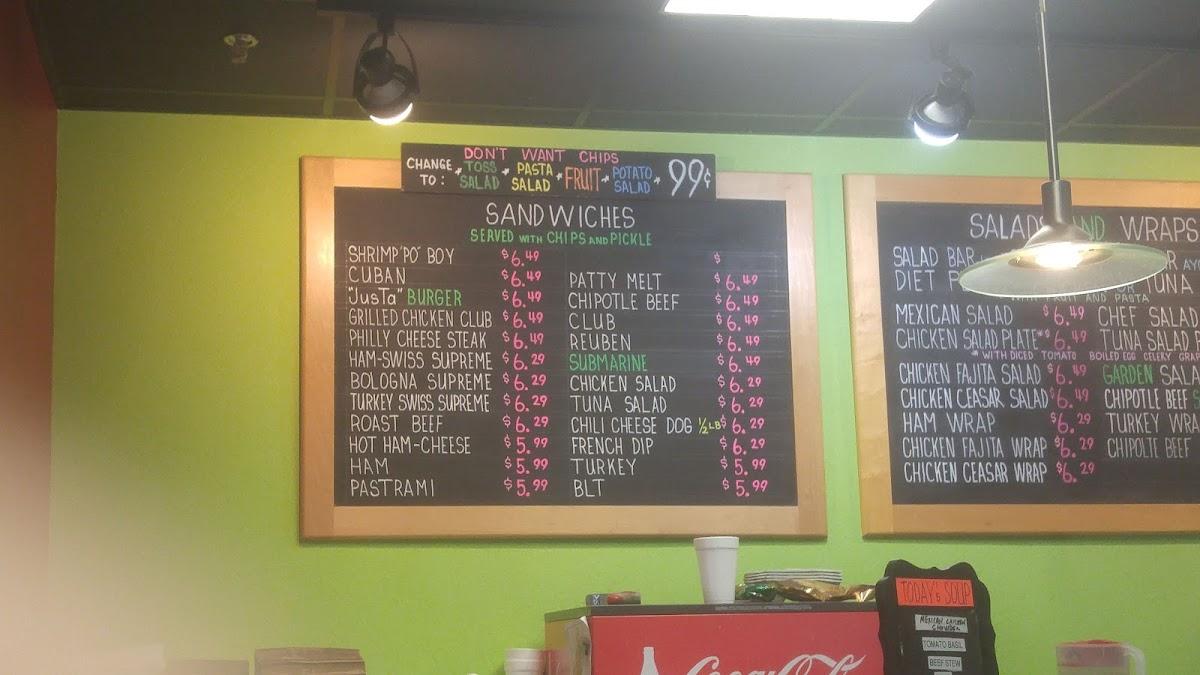 DON'T WANT CHIPS
CHANGE TO: TOSS SALAD * PASTA SALAD * FRUIT * POTATO SALAD * 99¢
SANDWICHES
SERVED WITH CHIPS AND PICKLE
SHRIMP "PO" BOY $6.49
CUBAN $6.49
"JusTa" BURGER $6.49
GRILLED CHICKEN CLUB $6.49
PHILLY CHEESE STEAK $6.49
HAM-SWISS SUPREME $6.29
BOLOGNA SUPREME $6.29
TURKEY SWISS SUPREME $6.29
ROAST BEEF $6.29
HOT HAM-CHEESE $5.99
HAM $5.99
PASTRAMI $5.99
$
PATTY MELT $6.49
CHIPOTLE BEEF $6.49
CLUB $6.49
REUBEN $6.49
SUBMARINE $6.49
CHICKEN SALAD $6.29
TUNA SALAD $6.29
CHILI CHEESE DOG ½ LB $6.29
FRENCH DIP $6.29
TURKEY $5.99
BLT $5.99
SALADS AND WRAPS
SALAD BAR
DIET
TUNA
FRUIT AND PASTA
MEXICAN SALAD $6.49 CHEF SALAD
CHICKEN SALAD PLATE* $6.49 TUNA SALAD
* WITH DICED TOMATO BOILED EGG CELERY
CHICKEN FAJITA SALAD $6.49 GARDEN
CHICKEN CEASAR SALAD $6.49 CHIPOTLE BEEF
HAM WRAP $6.29 TURKEY
CHICKEN FAJITA WRAP $6.29 CHIPOLTE BEEF
CHICKEN CEASAR WRAP $6.29
TODAY'S SOUP
MEXICAN CHICKEN CHOWDER
TOMATO BASIL
BEEF STEW
Coca-Cola